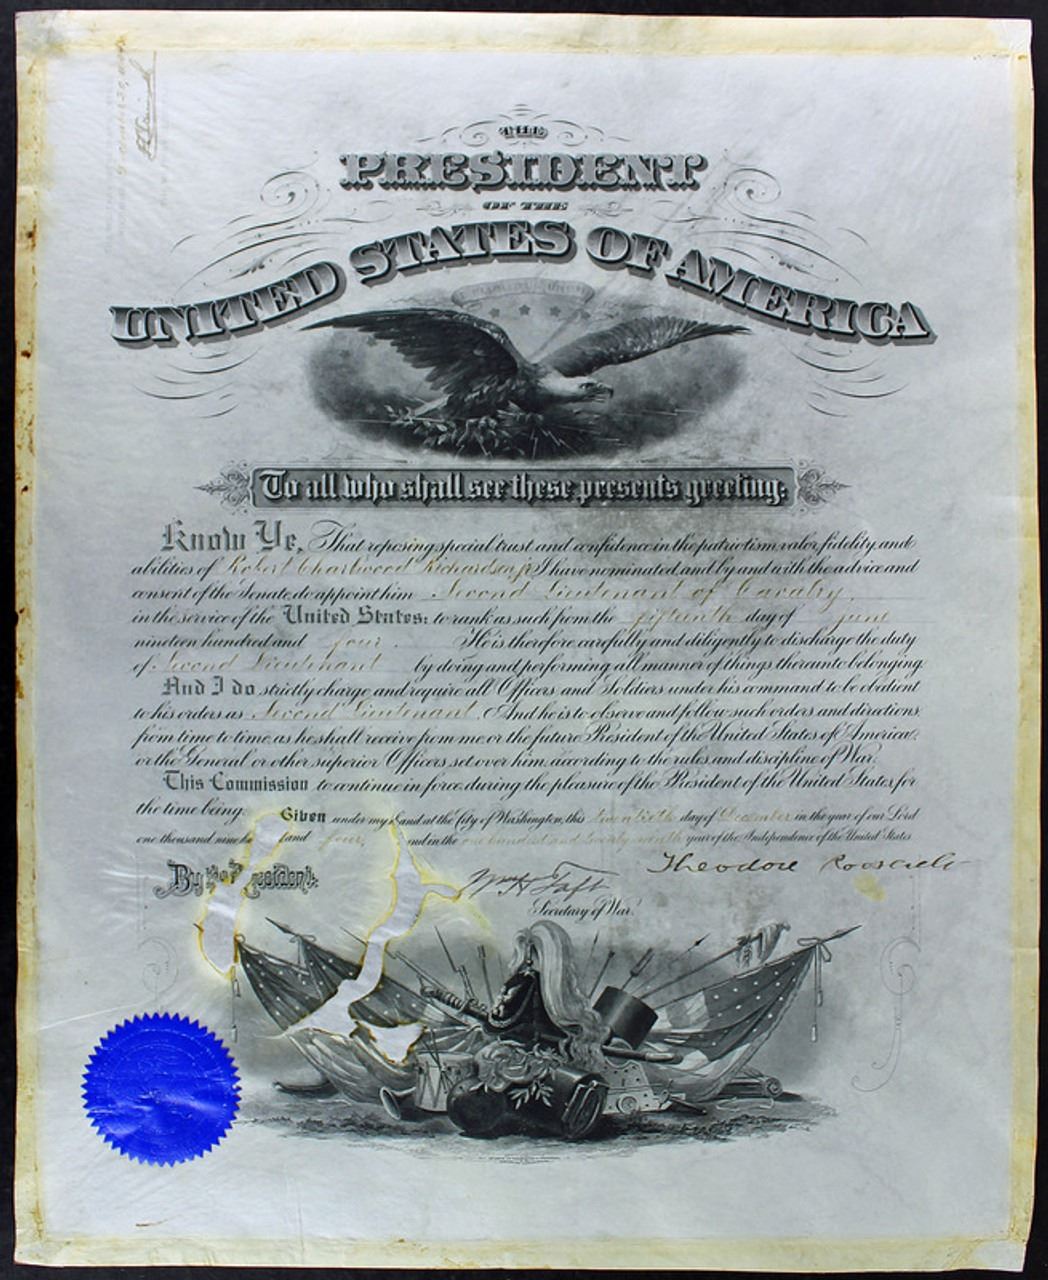 THE
PRESIDENT
OF THE
UNITED STATES OF AMERICA
To all who shall see these presents greeting:
Know Ye, That reposing special trust and confidence in the patriotism, valor, fidelity and
abilities of Robert Charlwood Richardson, jr. I have nominated and by and with the advice and
consent of the Senate do appoint him Second Lieutenant of Cavalry,
in the service of the United States: to rank as such from the fifteenth day of June
nineteen hundred and four. He is therefore carefully and diligently to discharge the duty
of Second Lieutenant by doing and performing all manner of things thereunto belonging.
And I do strictly charge and require all Officers and Soldiers under his command to be obedient
to his orders as Second Lieutenant. And he is to observe and follow such orders and directions,
from time to time, as he shall receive from me, or the future President of the United States of America,
or the General or other superior Officers set over him, according to the rules and discipline of War.
This Commission to continue in force during the pleasure of the President of the United States, for
the time being. Given under my hand at the City of Washington, this twentieth day of December in the year of our Lord
one thousand nine hu and four, and in the one hundred and twenty-ninth year of the Independence of the United States
By the President:
Theodore Roosevelt
Wm H Taft
Secretary of War.